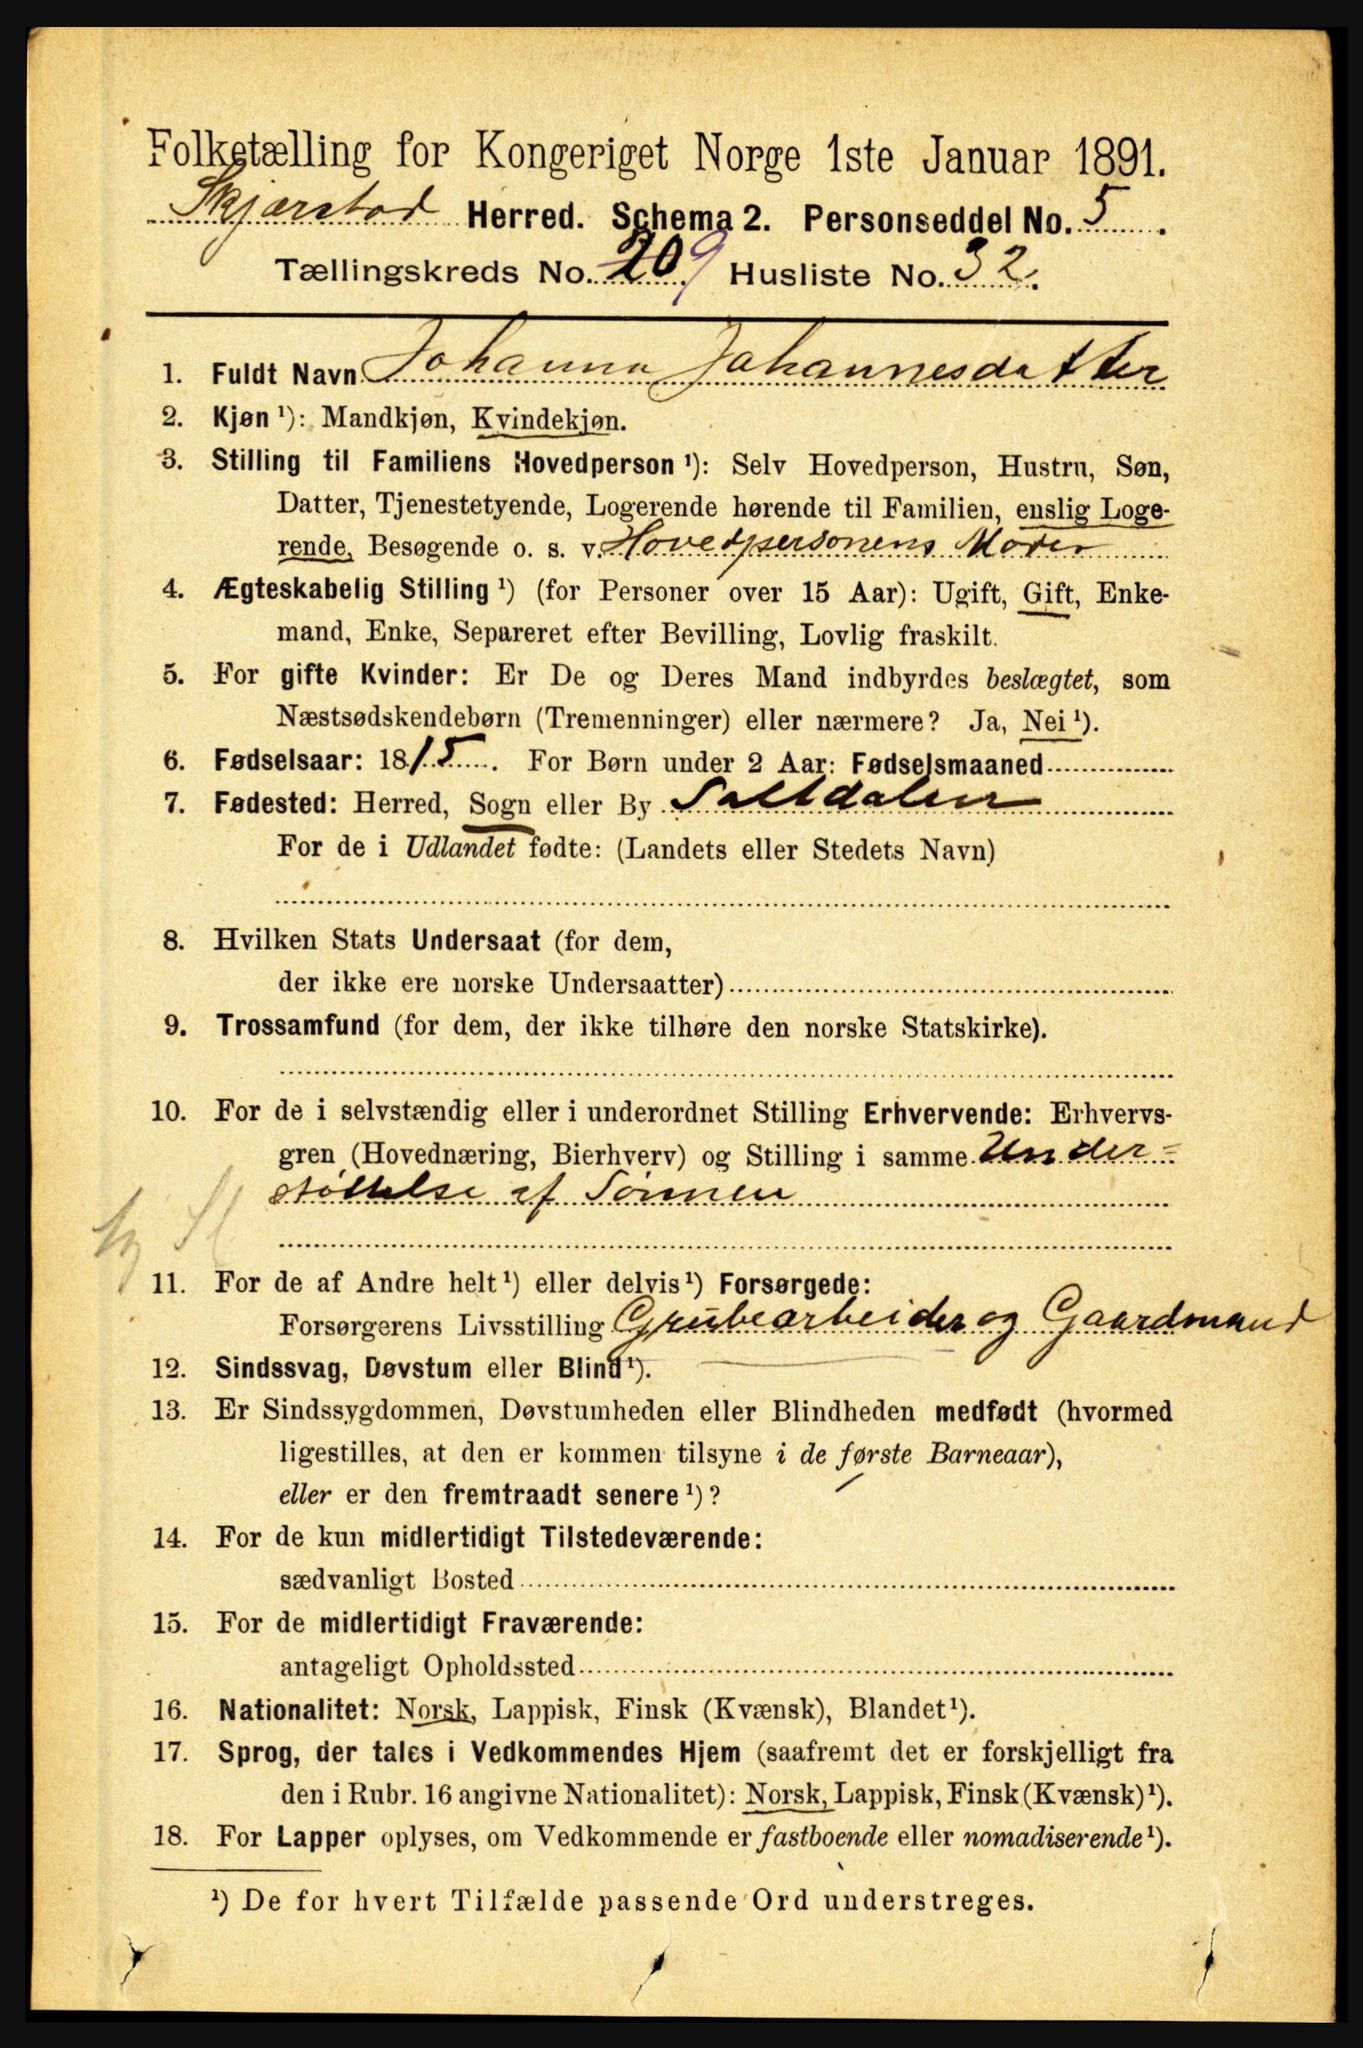 Folketælling for Kongeriget Norge 1ste Januar 1891.
Skjærstad Herred. Schema 2. Personseddel No. 5.
Tællingskreds No. 20 9 Husliste No. 32.
1. Fuldt Navn Johanna Johannesdatter
2. Kjøn ¹): Mandkjøn, Kvindekjøn.
3. Stilling til Familiens Hovedperson ¹): Selv Hovedperson, Hustru, Søn,
Datter, Tjenestetyende, Logerende hørende til Familien, enslig Loge-
rende, Besøgende o. s. v. Hovedpersonens Moder
4. Ægteskabelig Stilling ¹) (for Personer over 15 Aar): Ugift, Gift, Enke-
mand, Enke, Separeret efter Bevilling, Lovlig fraskilt.
5. For gifte Kvinder: Er De og Deres Mand indbyrdes beslægtet, som
Næstsødskendebørn (Tremenninger) eller nærmere? Ja, Nei ¹).
6. Fødselsaar: 1815. For Børn under 2 Aar: Fødselsmaaned
7. Fødested: Herred, Sogn eller By Saltdalen
For de i Udlandet fødte: (Landets eller Stedets Navn)
8. Hvilken Stats Undersaat (for dem,
der ikke ere norske Undersaatter)
9. Trossamfund (for dem, der ikke tilhøre den norske Statskirke).
10. For de i selvstændig eller i underordnet Stilling Erhvervende: Erhvervs-
gren (Hovednæring, Bierhverv) og Stilling i samme Under=
støttelse af Sønnen
11. For de af Andre helt ¹) eller delvis ¹) Forsørgede:
Forsørgerens Livsstilling Grubearbeider og Gaardmand
12. Sindssvag, Døvstum eller Blind ¹).
13. Er Sindssygdommen, Døvstumheden eller Blindheden medfødt (hvormed
ligestilles, at den er kommen tilsyne i de første Barneaar),
eller er den fremtraadt senere ¹)?
14. For de kun midlertidigt Tilstedeværende:
sædvanligt Bosted
15. For de midlertidigt Fraværende:
antageligt Opholdssted
16. Nationalitet: Norsk, Lappisk, Finsk (Kvænsk), Blandet ¹).
17. Sprog, der tales i Vedkommendes Hjem (saafremt det er forskjelligt fra
den i Rubr. 16 angivne Nationalitet): Norsk, Lappisk, Finsk (Kvænsk) ¹).
18. For Lapper oplyses, om Vedkommende er fastboende eller nomadiserende ¹).
¹) De for hvert Tilfælde passende Ord understreges.